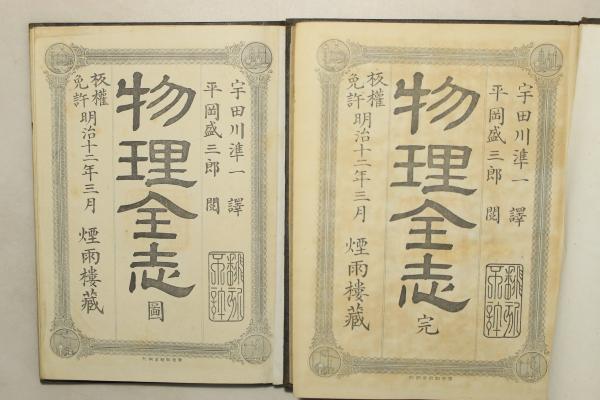 宇田川準一 譯
平岡盛三郎 閲
物理全志
完
板權
免許
明治十二年三月 煙雨樓藏
宇田川準一 譯
平岡盛三郎 閲
物理全志
圖
板權
免許
明治十二年三月 煙雨樓藏